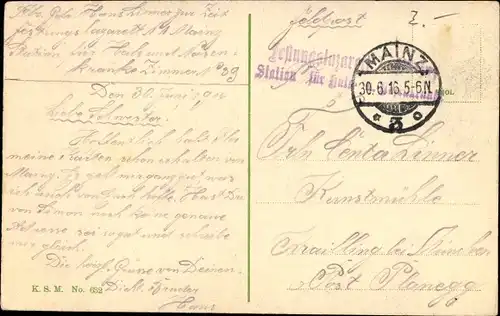 Abs. Gefr. Hans Linner zur Zeit
Festungslazarett 4 Mainz
Station für Hals und Nasen
kranke Zimmer № 39
Den 30. Juni 1916
Liebe Schwester!
Hoffentlich habt Ihr
meine Karten schon erhalten von
Mainz. Es geht mir ganz gut was
ich auch von Euch hoffe. Hast Du
von Simon noch keine genaue
Adresse sei so gut und schreibe
mir gleich.
Die herzl. Grüße von Deinem
Dich l. Bruder
Hans
K. S. M. No. 632
Feldpost
2.-
Festungslazarett
Station für Hals
MAINZ
30.6.16.5-6N.
* 3 o
Frln Centa Linner
Kunstmühle
Krailling bei
Post Planegg